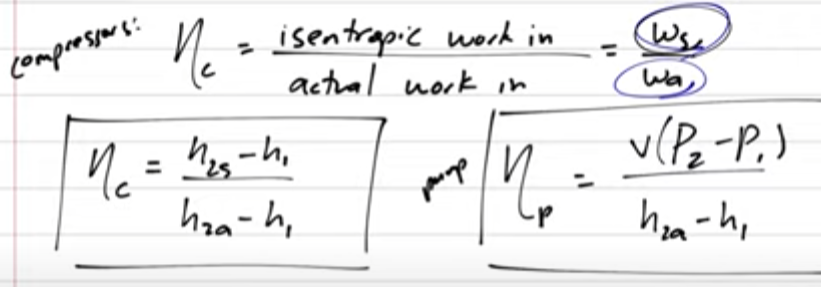 compressors: η_c = isentropic work in / actual work in = w_s / w_a
η_c = h_2s - h_1 / h_2a - h_1
pump η_p = v(P_2 - P_1) / h_2a - h_1